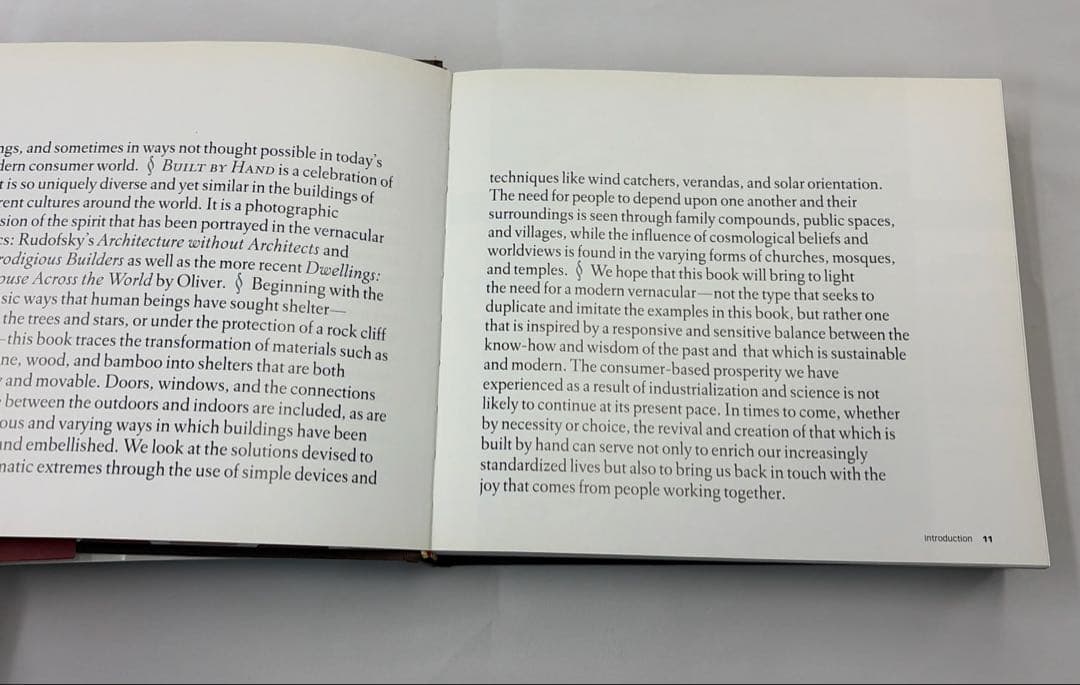 and sometimes in ways not thought possible in today's
consumer world. § BUILT BY HAND is a celebration of
is so uniquely diverse and yet similar in the buildings of
cultures around the world. It is a photographic
of the spirit that has been portrayed in the vernacular
Rudofsky's Architecture without Architects and
Builders as well as the more recent Dwellings:
Across the World by Oliver. § Beginning with the
ways that human beings have sought shelter—
the trees and stars, or under the protection of a rock cliff
—this book traces the transformation of materials such as
wood, and bamboo into shelters that are both
and movable. Doors, windows, and the connections
between the outdoors and indoors are included, as are
and varying ways in which buildings have been
embellished. We look at the solutions devised to
extremes through the use of simple devices and
techniques like wind catchers, verandas, and solar orientation.
The need for people to depend upon one another and their
surroundings is seen through family compounds, public spaces,
and villages, while the influence of cosmological beliefs and
worldviews is found in the varying forms of churches, mosques,
and temples. § We hope that this book will bring to light
the need for a modern vernacular—not the type that seeks to
duplicate and imitate the examples in this book, but rather one
that is inspired by a responsive and sensitive balance between the
know-how and wisdom of the past and that which is sustainable
and modern. The consumer-based prosperity we have
experienced as a result of industrialization and science is not
likely to continue at its present pace. In times to come, whether
by necessity or choice, the revival and creation of that which is
built by hand can serve not only to enrich our increasingly
standardized lives but also to bring us back in touch with the
joy that comes from people working together.
Introduction 11